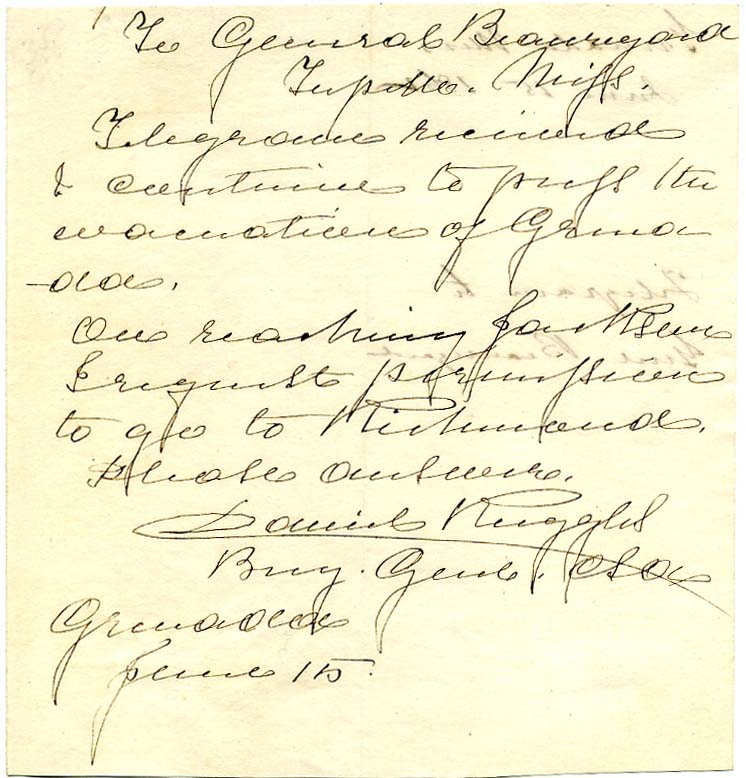 To General Beauregard
Tupelo. Miss.
Telegram received
& continue to press the
evacuation of Grena
-da.
On reaching Jackson
I request permission
to go to Richmond.
Please answer.
Daniel Ruggles
Brig. Genl. CSA
Grenada
June 15.